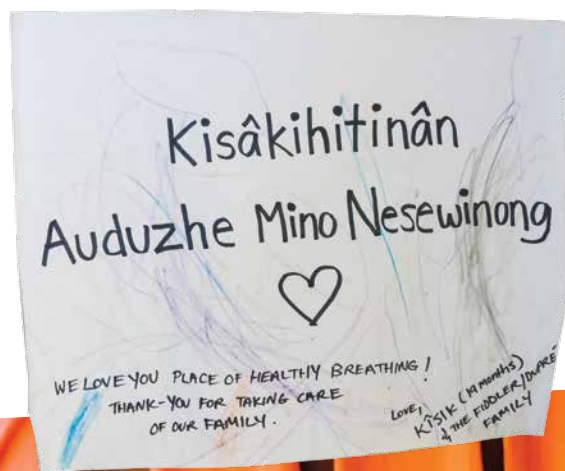 Kisâkihitinân
Auduzhe Mino Nesewinong
WE LOVE YOU PLACE OF HEALTHY BREATHING!
THANK-YOU FOR TAKING CARE
OF OUR FAMILY.
LOVE,
KÎSIK (19 months)
& THE FIDDLER/DUPRÉ
FAMILY